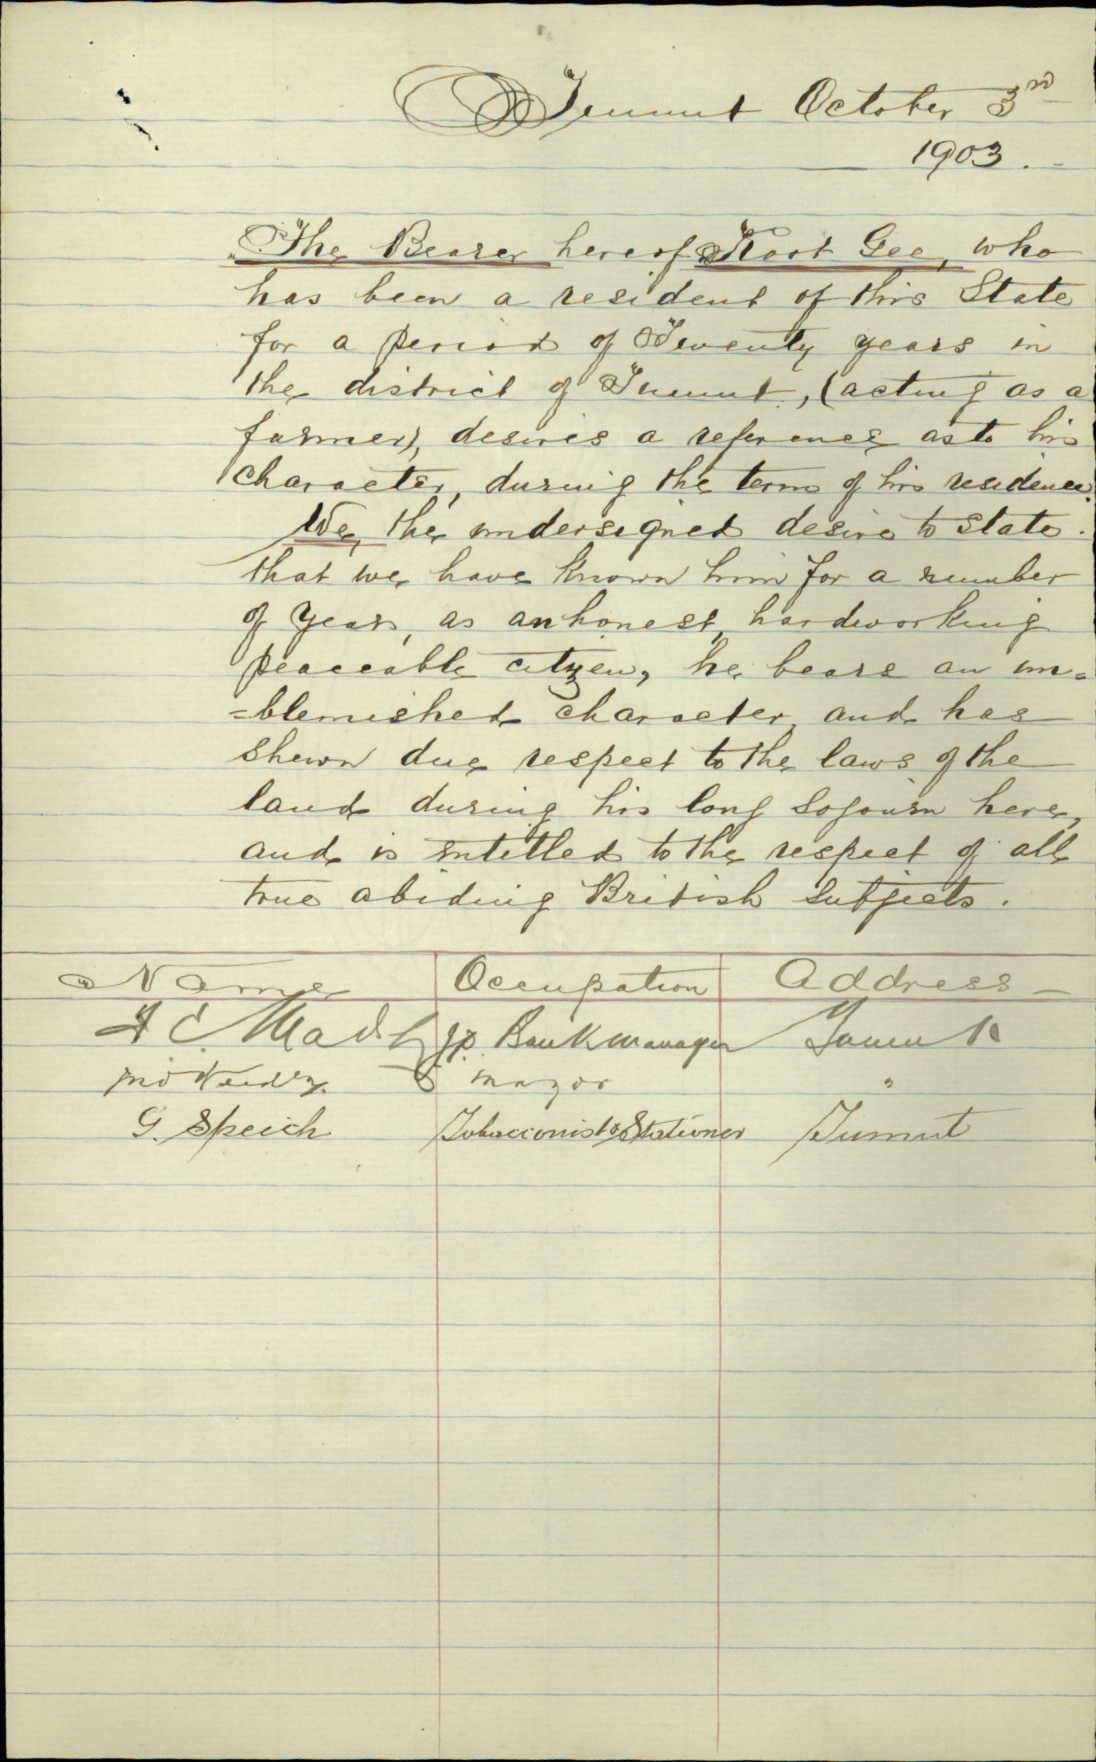 Tumut October 3rd
1903.
The Bearer hereof Hoot Gee, who
has been a resident of this State
for a period of Twenty years in
the district of Tumut, (acting as a
farmer), desires a reference as to his
character, during the term of his residence.
We, the undersigned desire to state
that we have known him for a number
of years, as an honest, hardworking
peaceable citizen, he bears an un=
=blemished character, and has
shewn due respect to the laws of the
land during his long sojourn here,
and is intitled to the respect of all
true abiding British subjects.
Name Occupation Address
J.P. Bank manager Tumut
mayor "
G. Speich Tobacconist & Stationer Tumut